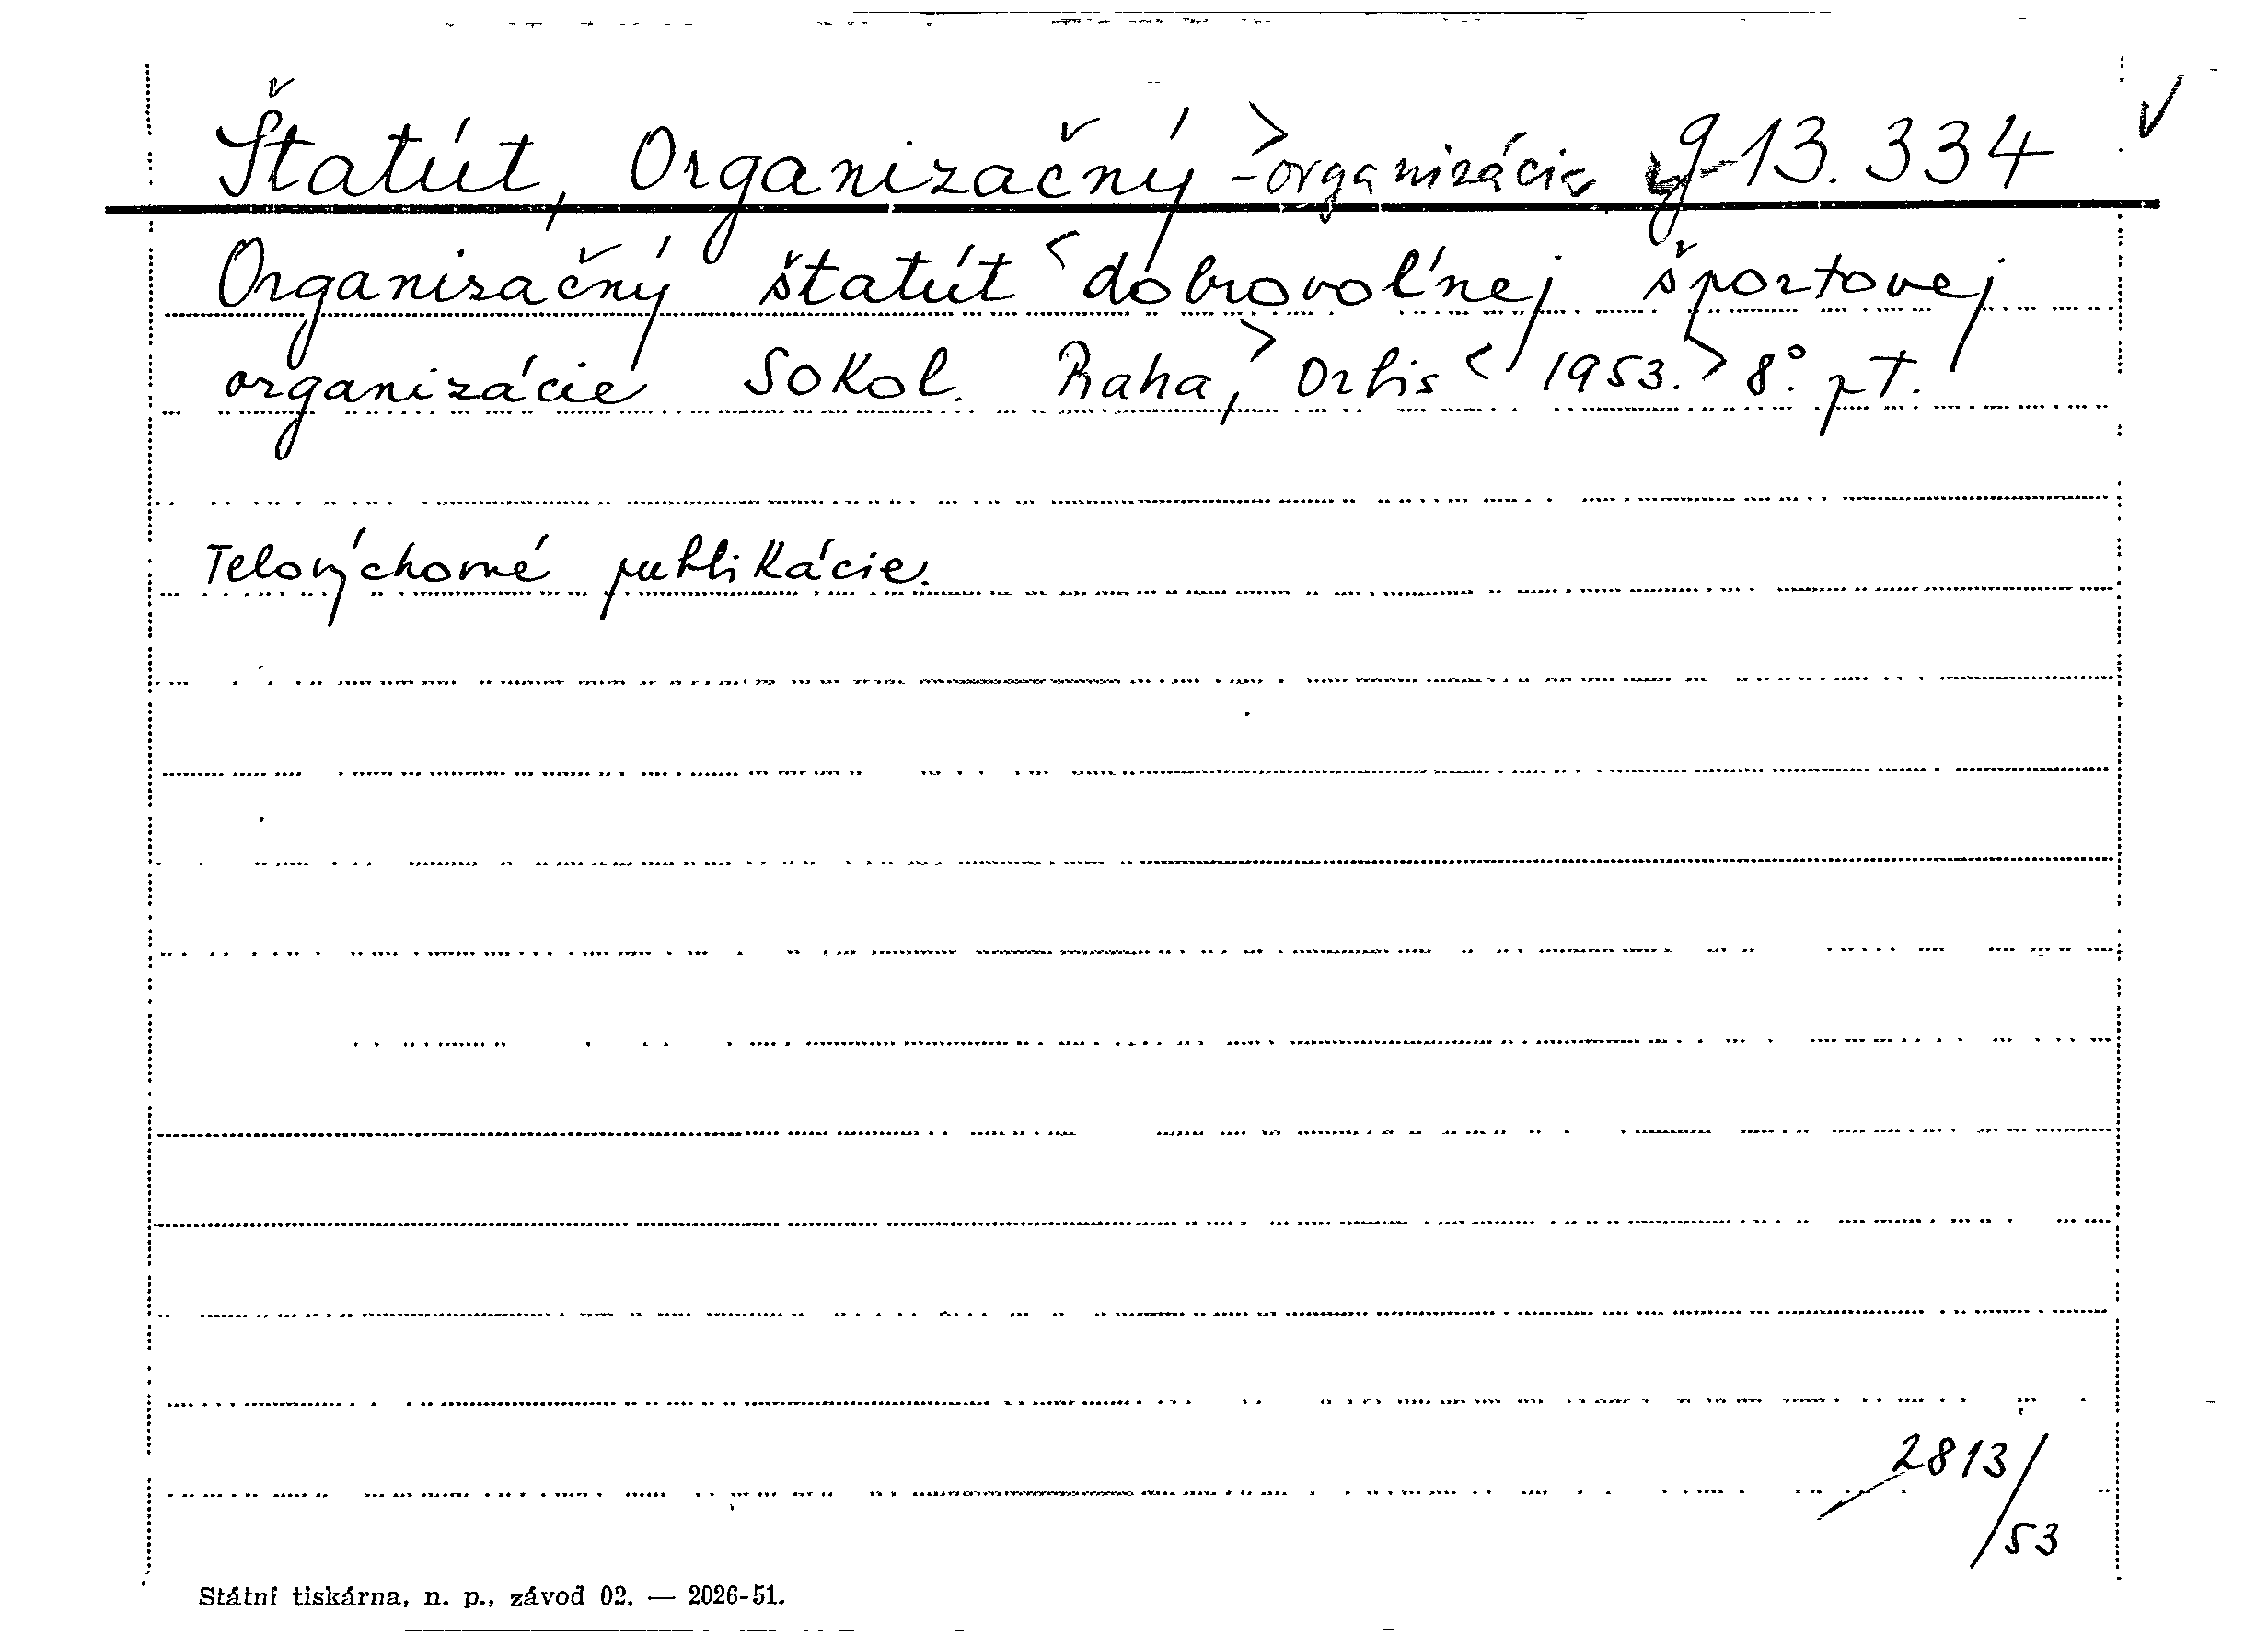 Štatút, Organizačný > -organizácie g-13.334 ✓
Organizačný štatút < dobrovoľnej športovej
organizácie Sokol. Praha, > Orbis < 1953. > 8°. pT.
Telovýchovné publikácie.
2813/
/53
Státní tiskárna, n. p., závod 02. — 2026-51.